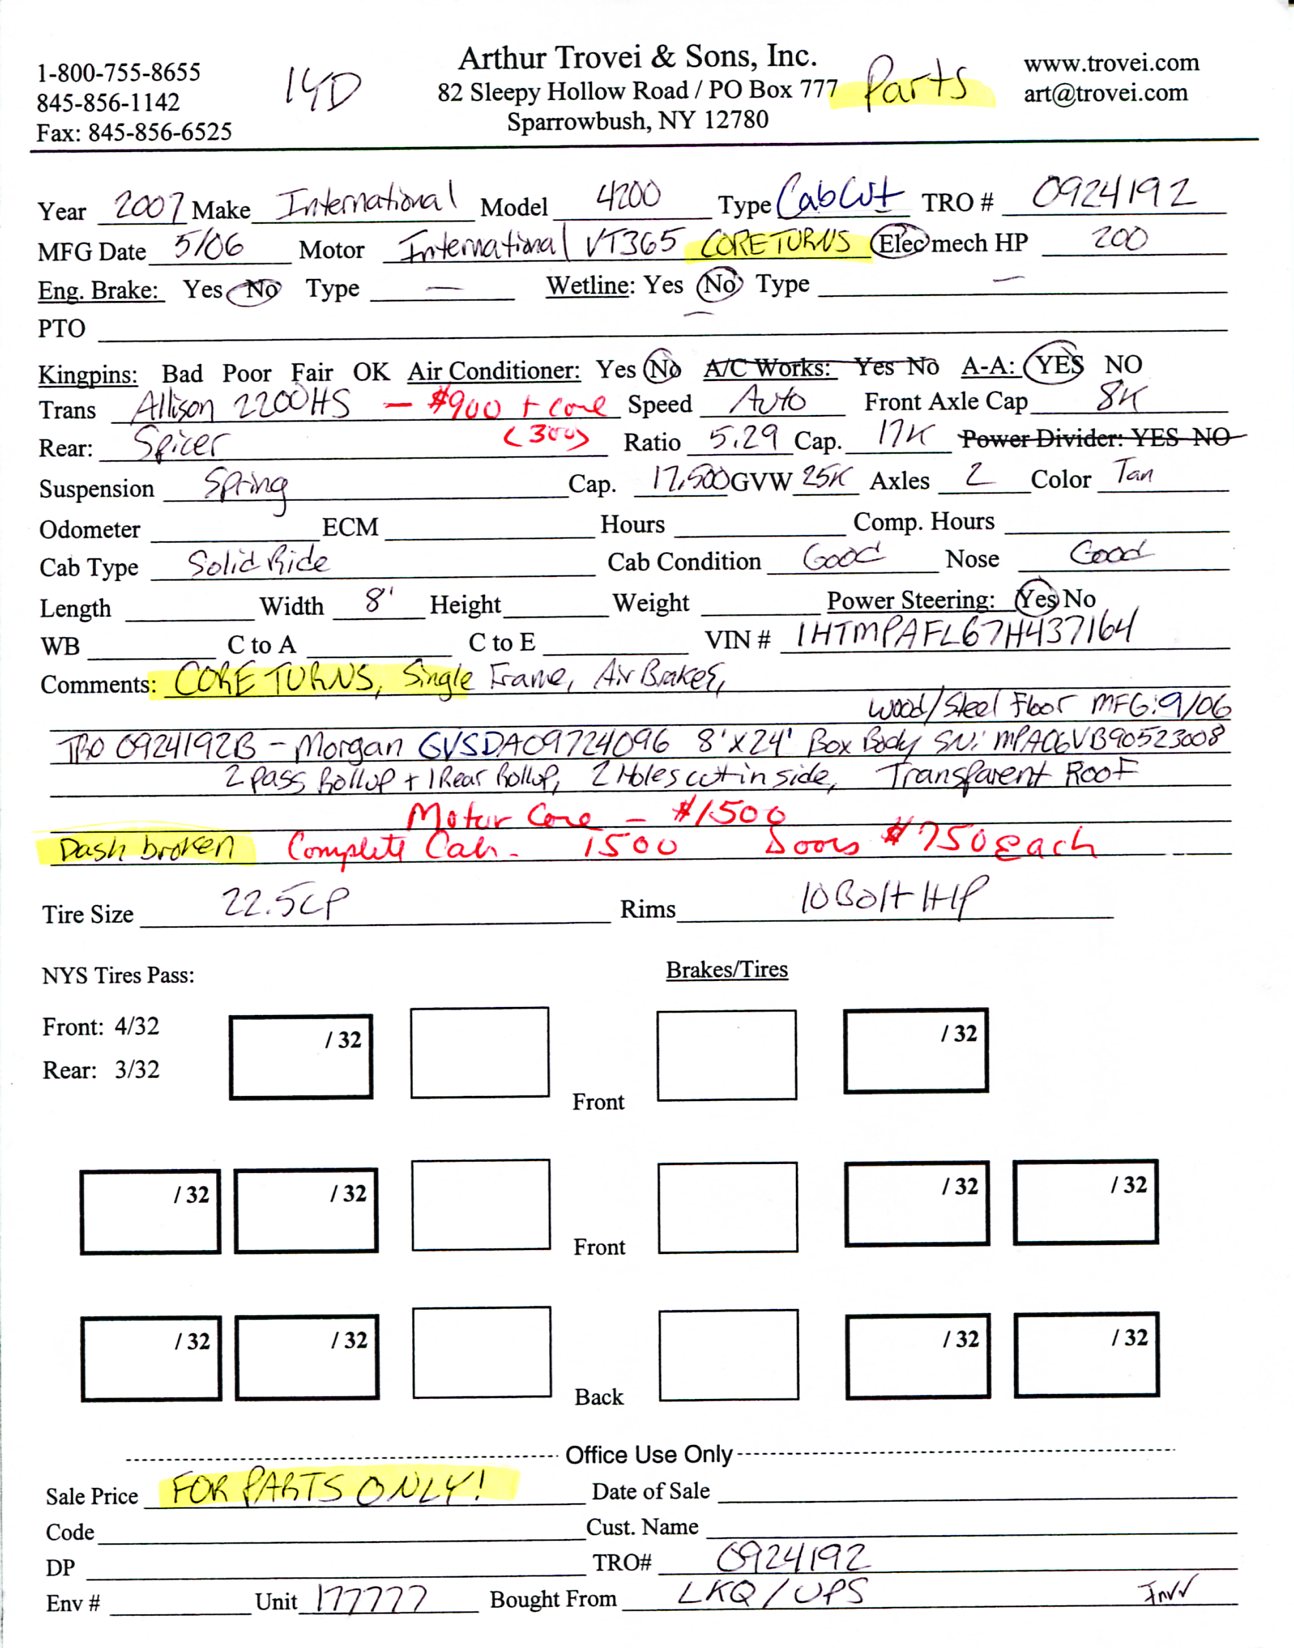 1-800-755-8655
845-856-1142
Fax: 845-856-6525
14D
Arthur Trovei & Sons, Inc.
82 Sleepy Hollow Road / PO Box 777
Sparrowbush, NY 12780
Parts
www.trovei.com
art@trovei.com
Year 2007 Make International Model 4200 Type Cab Cut TRO # 0924192
MFG Date 5/06 Motor International VT365 CORE TURNS Elec mech HP 200
Eng. Brake: Yes No Type — Wetline: Yes No Type —
PTO
Kingpins: Bad Poor Fair OK Air Conditioner: Yes No A/C Works: Yes No A-A: YES NO
Trans Allison 2200HS — $900 + core Speed Auto Front Axle Cap 8K
Rear: Spicer (300) Ratio 5.29 Cap. 17K Power Divider: YES NO
Suspension Spring Cap. 17,500 GVW 25K Axles 2 Color Tan
Odometer ECM Hours Comp. Hours
Cab Type Solid Ride Cab Condition Good Nose Good
Length Width 8' Height Weight Power Steering: Yes No
WB C to A C to E VIN # 1HTMPAFL67H437164
Comments: CORE TURNS, Single Frame, Air Brakes,
Wood/Steel Floor MFG: 9/06
TRO 0924192B - Morgan GVSDA09724096 8'x24' Box Body SN: MPA06VB90523008
2 pass Rollup + 1 Rear Rollup, 2 Holes cut in side, Transparent Roof
Motor Core - $1500
Dash broken Complete Cab - 1500 Doors $750 each
Tire Size 22.5LP Rims 10 Bolt HP
NYS Tires Pass:
Brakes/Tires
Front: 4/32
Rear: 3/32
/ 32 / 32
Front
/ 32 / 32 / 32 / 32
Front
/ 32 / 32 / 32 / 32
Back
Office Use Only
Sale Price FOR PARTS ONLY! Date of Sale
Code Cust. Name
DP TRO# 0924192
Env # Unit 177777 Bought From LKQ / UPS Inv